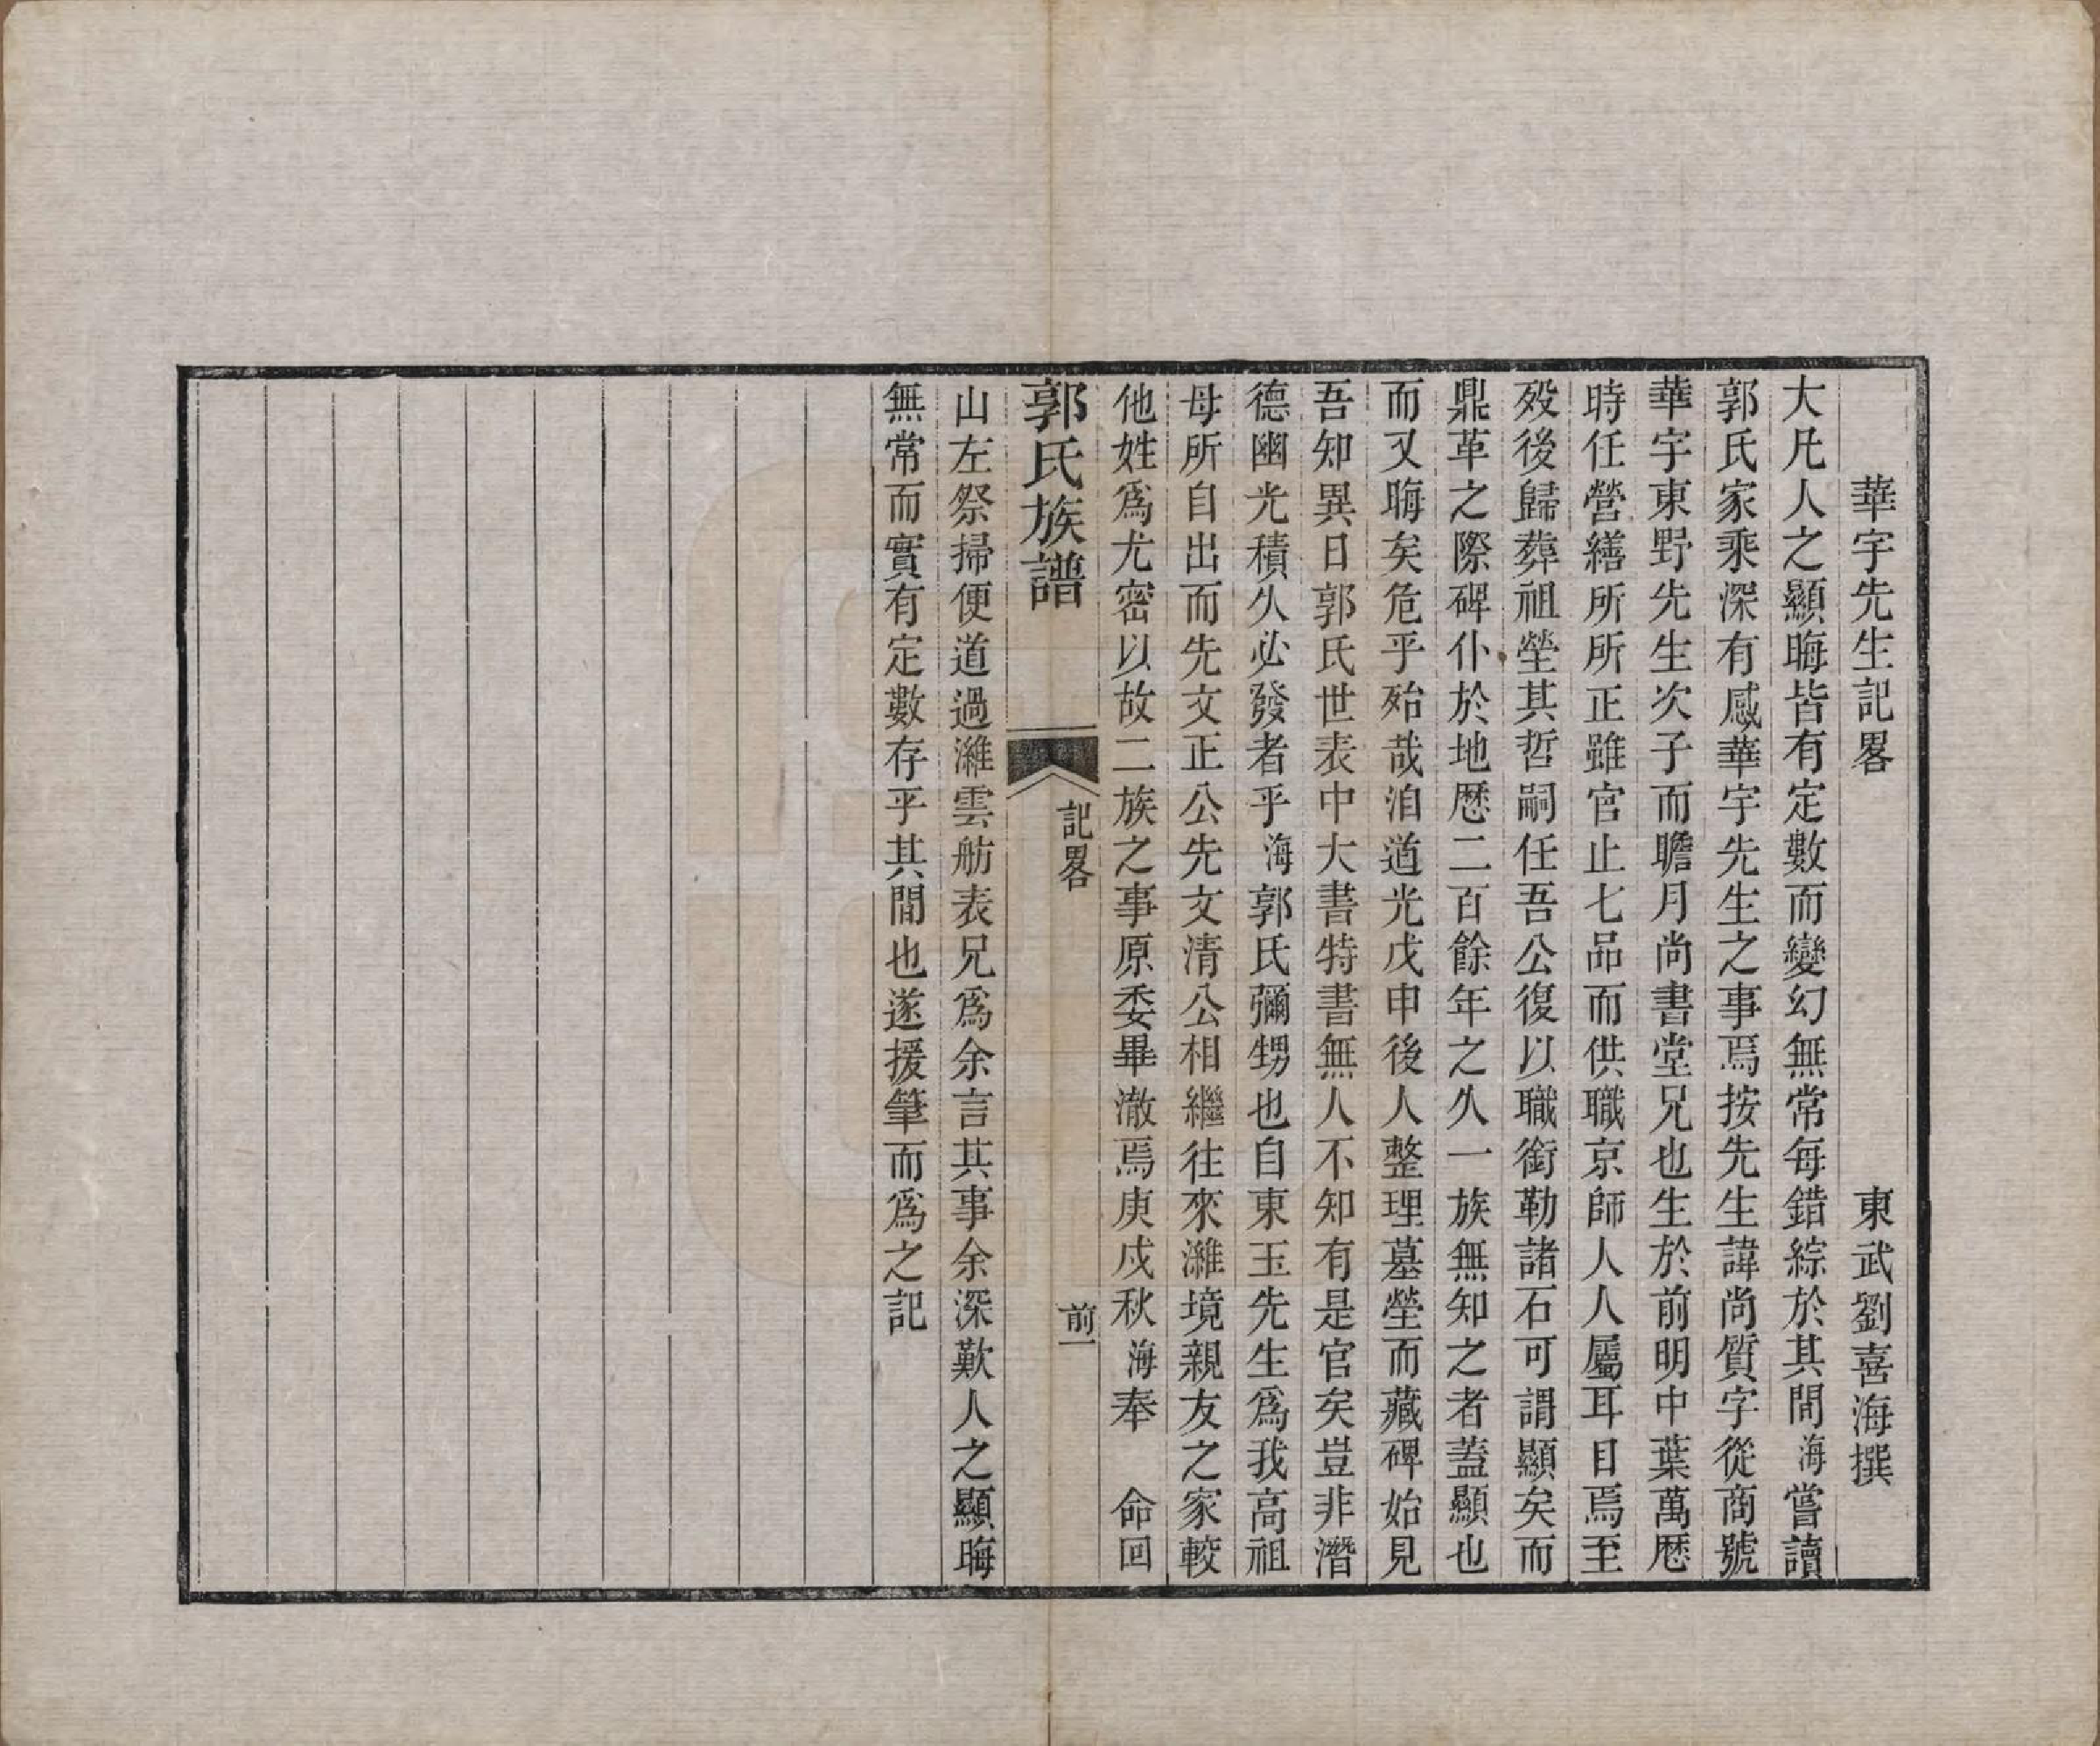 華宇先生記畧　東武劉喜海撰
大凡人之顯晦皆有定數而變幻無常每錯綜於其間海嘗讀
郭氏家乘深有感華宇先生之事焉按先生諱尚質字從商號
華宇東野先生次子而瞻月尚書堂兄也生於前明中葉萬歷
時任營繕所所正雖官止七品而供職京師人人屬耳目焉至
歿後歸葬祖塋其哲嗣任吾公復以職銜勒諸石可謂顯矣而
鼎革之際碑仆於地歷二百餘年之久一族無知之者蓋顯也
而又晦矣危乎殆哉洎道光戊申後人整理墓塋而藏碑始見
吾知異日郭氏世表中大書特書無人不知有是官矣豈非潛
德幽光積久必發者乎海郭氏彌甥也自東玉先生為我高祖
母所自出而先文正公先文清公相繼往來濰境親友之家較
他姓為尤密以故二族之事原委畢澈焉庚戌秋海奉　命回
郭氏族譜　記畧　前一
山左祭掃便道過濰雲舫表兄為余言其事余深歎人之顯晦
無常而實有定數存乎其間也遂援筆而為之記